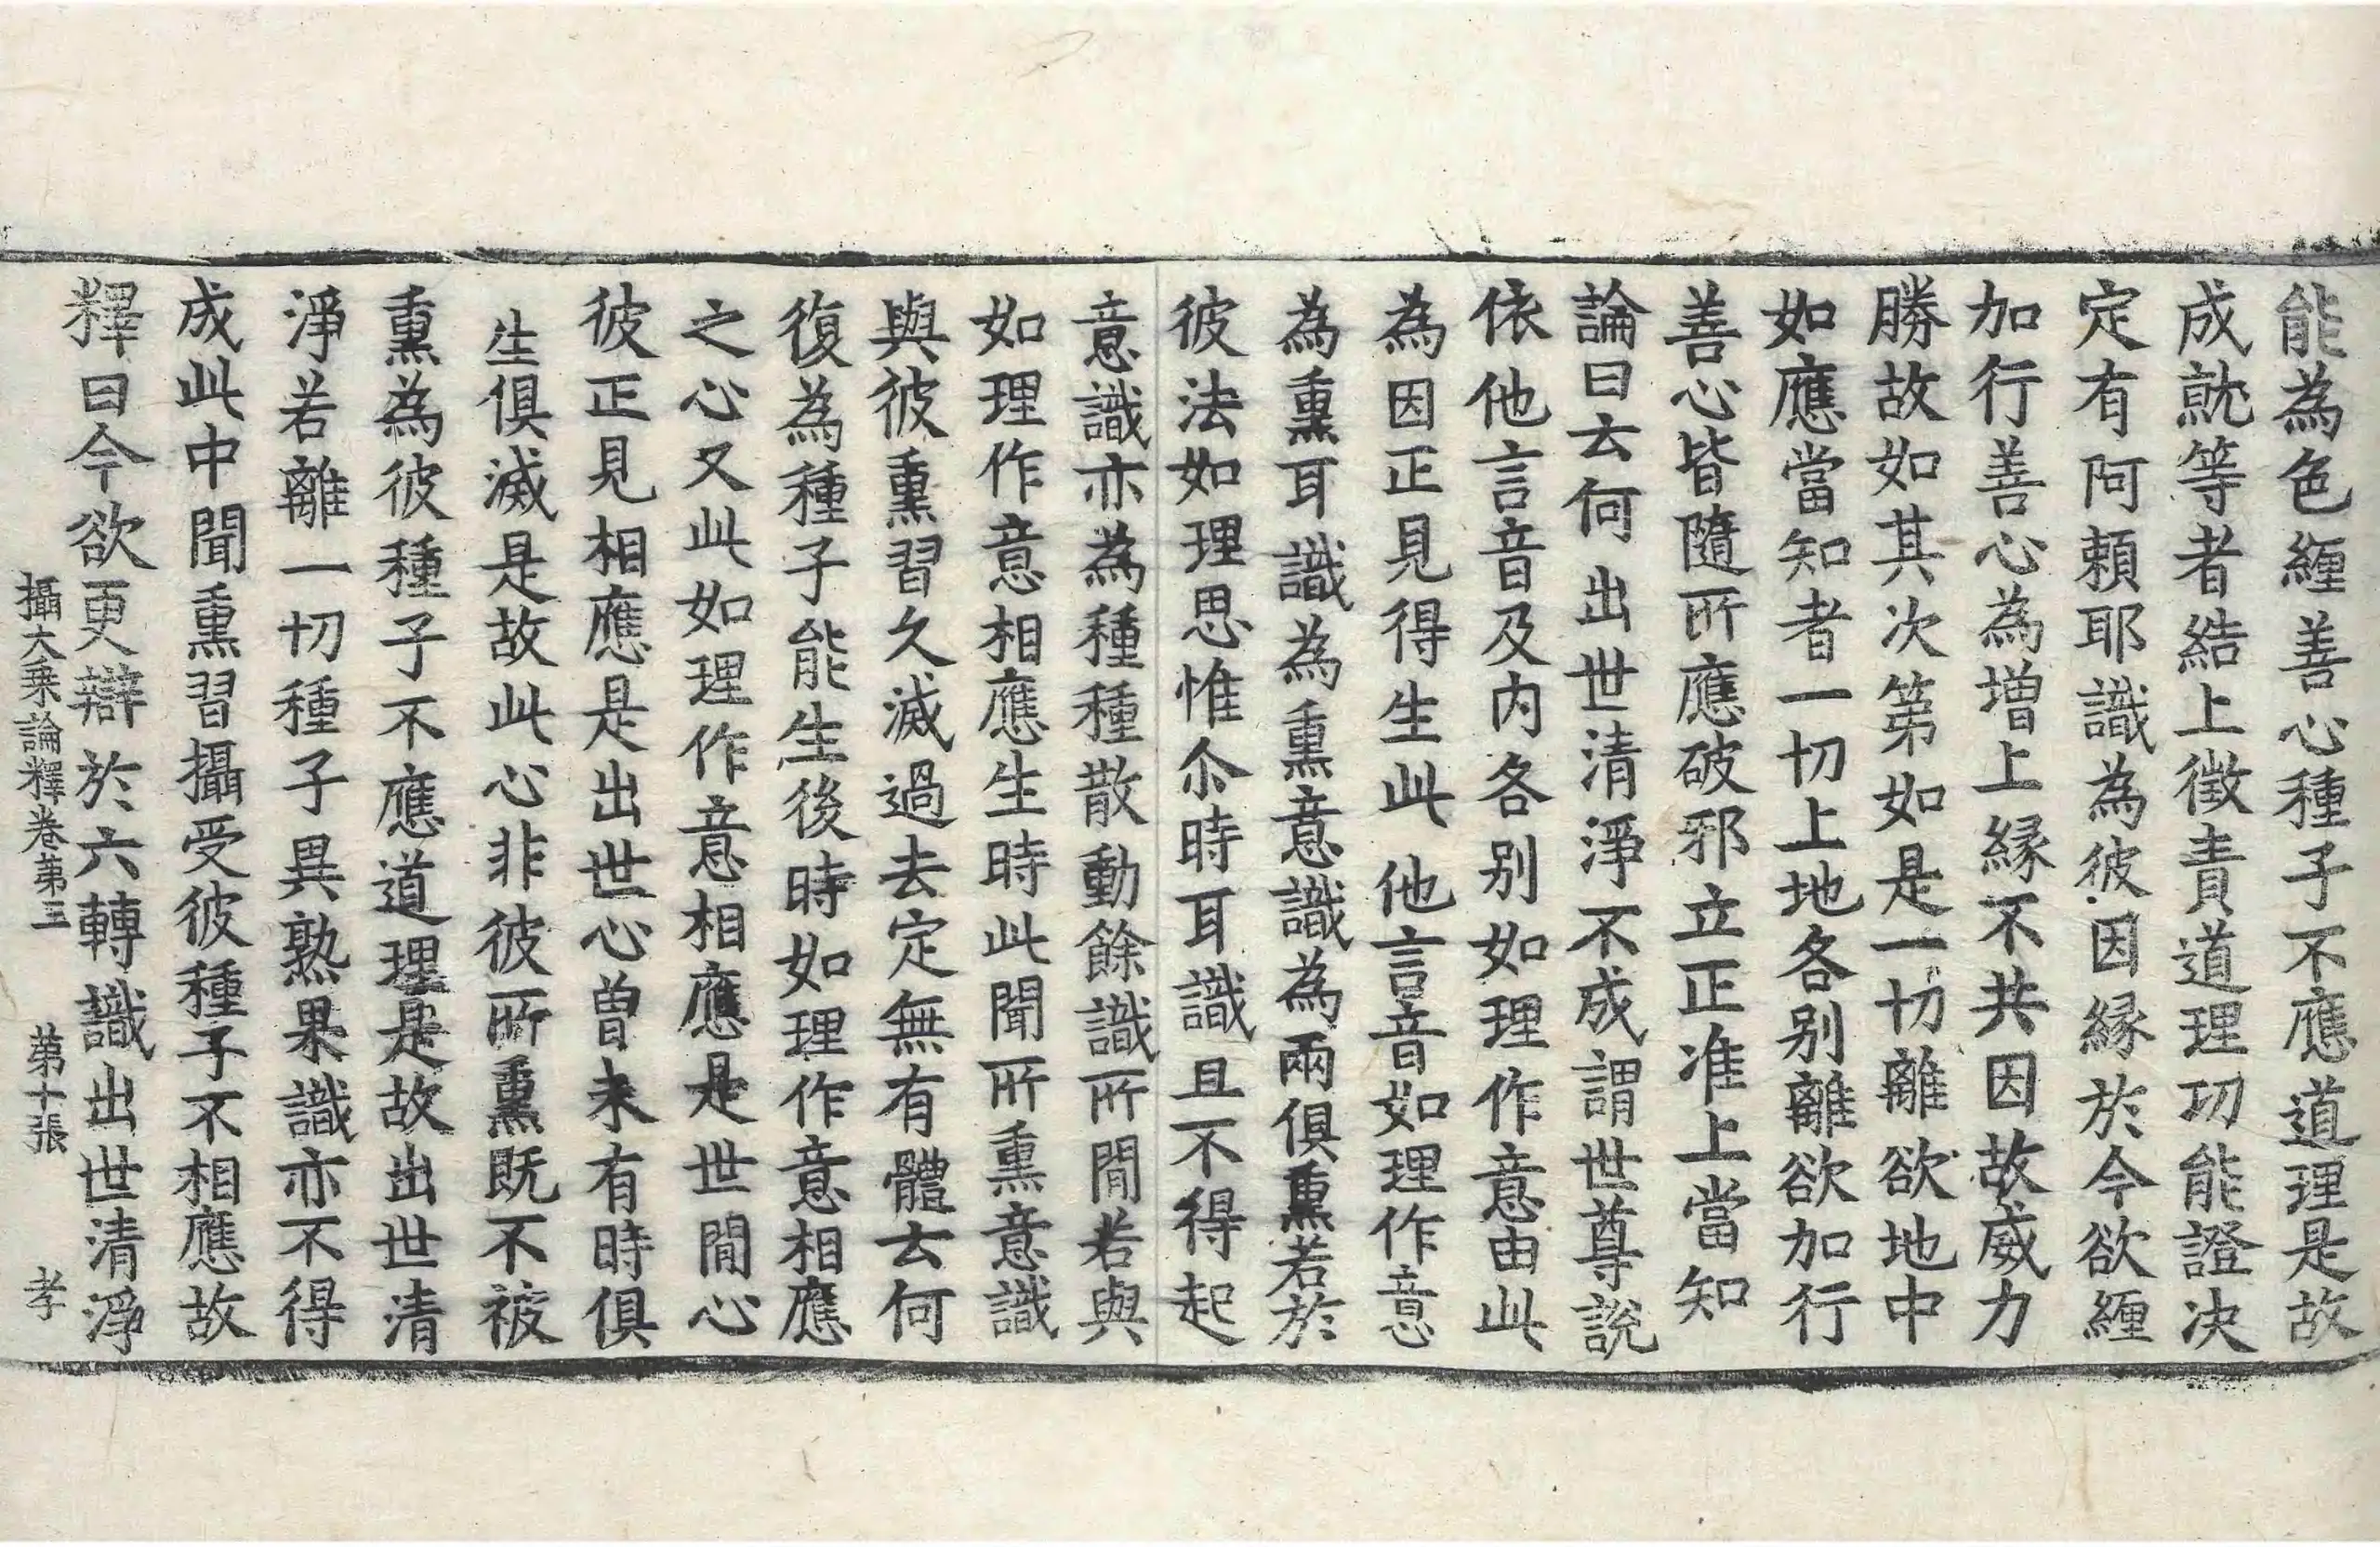 能為色纏善心種子不應道理是故
成就等者結上徵責道理功能證決
定有阿賴耶識為彼因緣於今欲纏
加行善心為增上緣不共因故威力
勝故如其次第如是一切離欲地中
如應當知者一切上地各別離欲加行
善心皆隨所應破邪立正准上當知
論曰云何出世清淨不成謂世尊說
依他言音及內各別如理作意由此
為因正見得生此他言音如理作意
為熏耳識為熏意識為兩俱熏若於
彼法如理思惟尒時耳識且不得起
意識亦為種種散動餘識所間若與
如理作意相應生時此聞所熏意識
與彼熏習久滅過去定無有體云何
復為種子能生後時如理作意相應
之心又此如理作意相應是世間心
彼正見相應是出世心曾未有時俱
生俱滅是故此心非彼所熏既不被
熏為彼種子不應道理是故出世清
淨若離一切種子異熟果識亦不得
成此中聞熏習攝受彼種子不相應故
釋曰今欲更辯於六轉識出世清淨
攝大乘論釋卷第三　第十張　孝